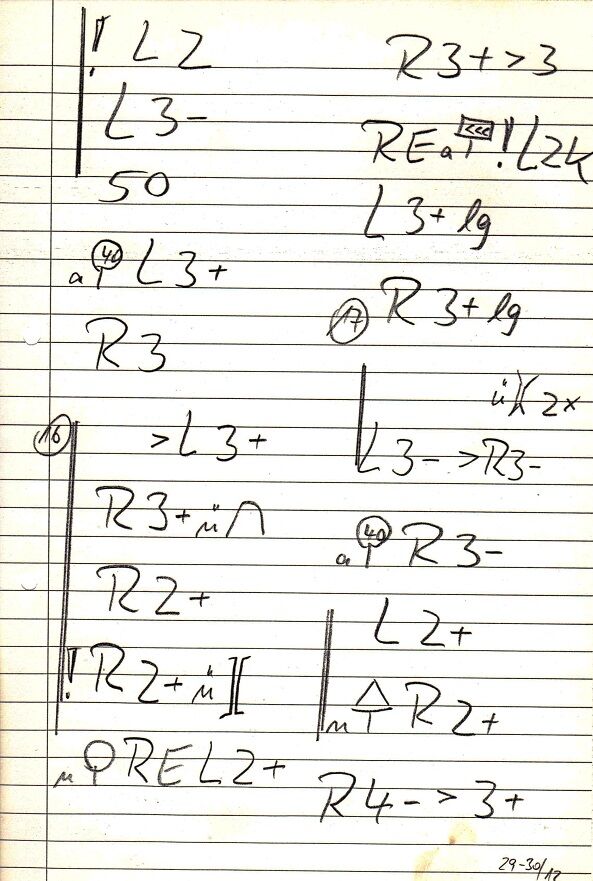 ! L 2
L 3-
50
a 40 L 3+
R 3
16 >L 3+
R 3+ ü ∩
R 2+
! R 2+ ü ][
RE L 2+
R 3+ > 3
RE a <<< ! L 2 K
L 3+ lg
17 R 3+ lg
ü )( 2x
L 3- >R3-
a 40 R 3-
L 2+
R 2+
R 4- > 3+
29-30/12